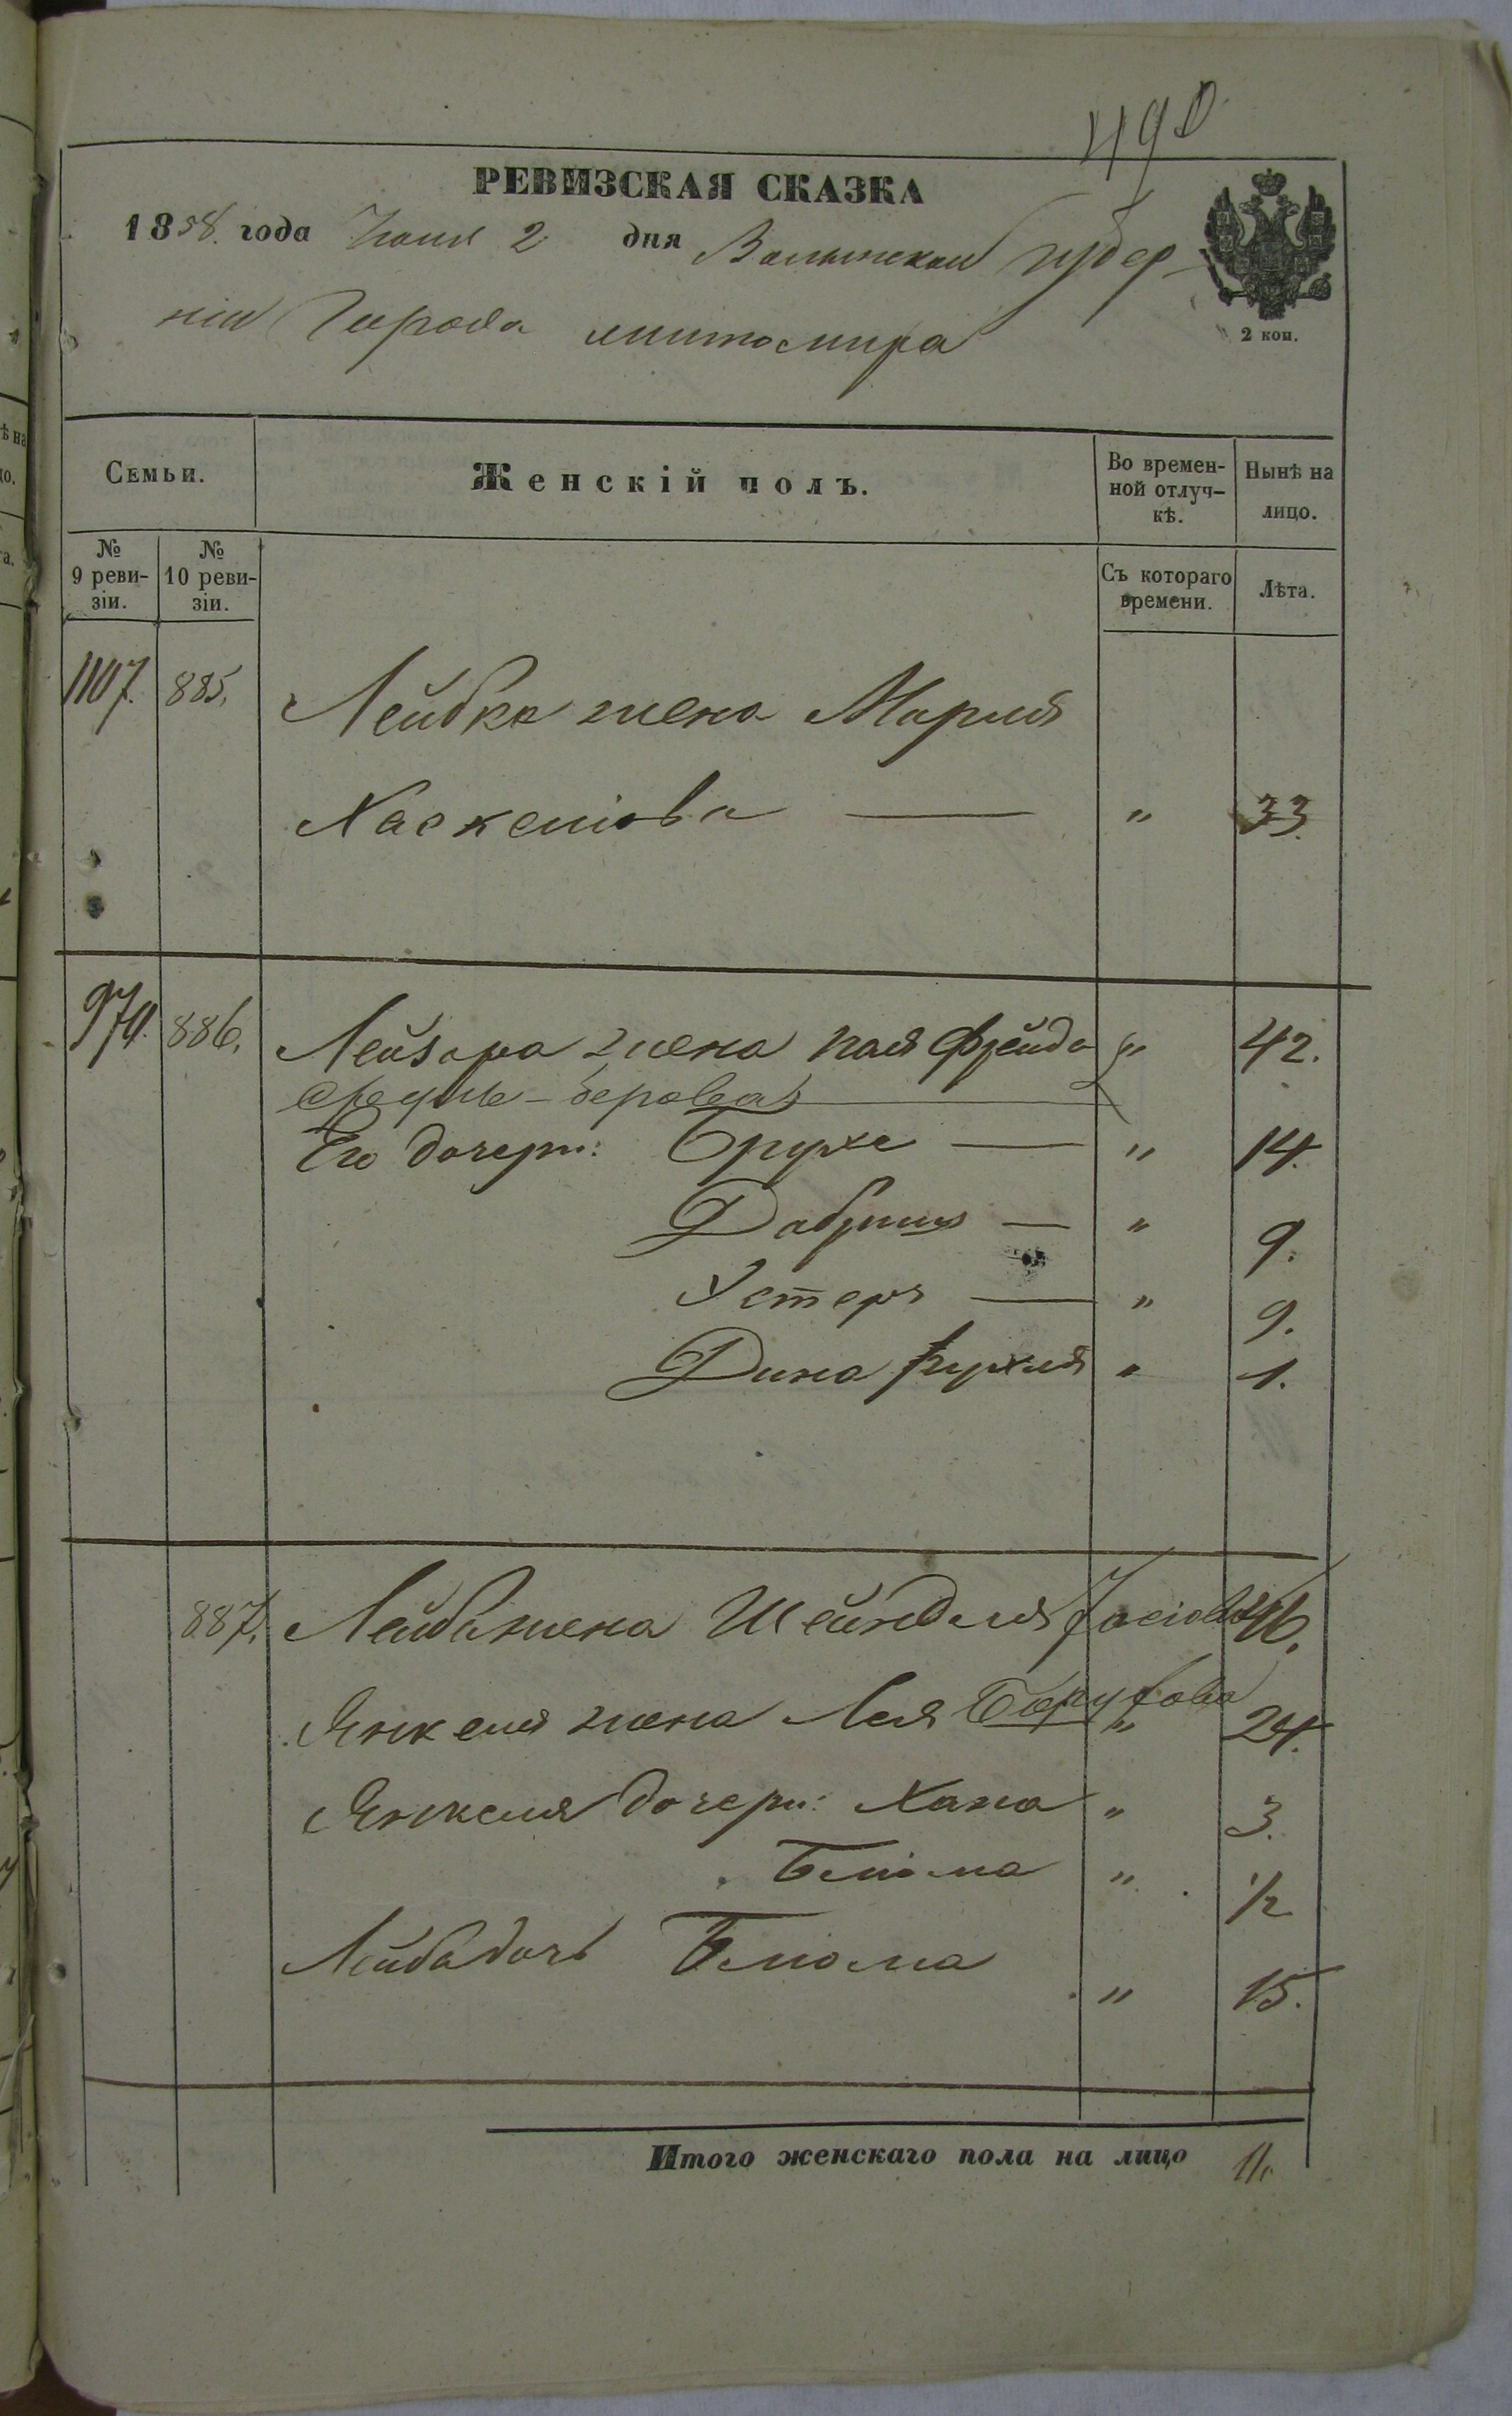 490
РЕВИЗСКАЯ СКАЗКА
1858. года Іюня 2 дня Волынской Губер-
ніи Города Житомира
2 коп.
Семьи.
Женскій полъ.
Во времен-
ной отлуч-
кѣ.
Нынѣ на
лицо.
№
9 реви-
зіи.
№
10 реви-
зіи.
Съ котораго
времени.
Лѣта.
1107. 885. Лейбка жена Марія
Хаскеліова — " 33.
970. 886. Лейзора жена Фрейда " 42.
Берова
Его дочери: Брухе — " 14.
Добрыш — " 9.
Эстеръ — " 9.
Дина Рухля " 1.
887. Лейба жена Шейндля Іосіова 46.
Янкеля жена Лея Борухова " 24.
Янкеля дочери: Хана " 3.
Блюма " 1/2
Лейба дочь Блюма " 15.
Итого женскаго пола на лицо 11.